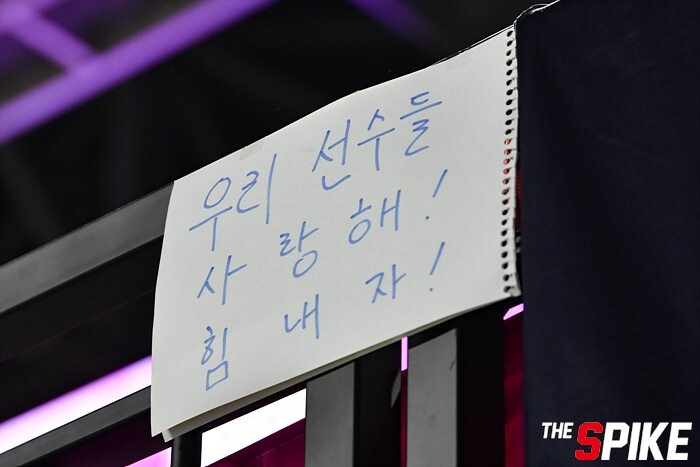 우리 선수들
사랑해!
힘내자!
THE SPIKE